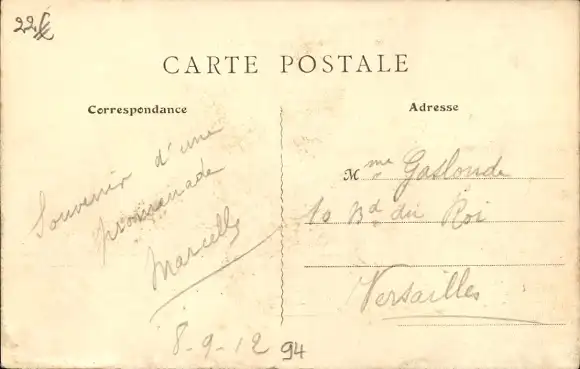 22
CARTE POSTALE
Correspondance
Adresse
Souvenir d'une
promenade
Marcelle
8-9-12
94
Mme Gaslonde
10 Bd du Roi
Versailles